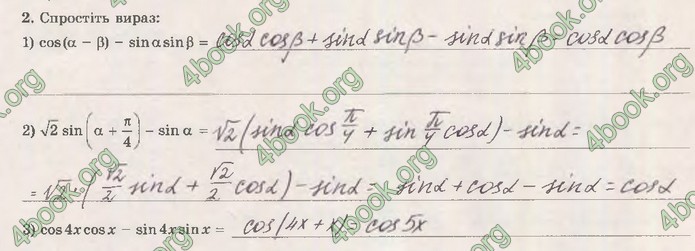 2. Спростіть вираз:
1) cos(α − β) − sin α sin β = cosα cosβ + sinα sinβ − sinα sinβ = cosα cosβ
2) √2 sin(α + π/4) − sin α = √2 (sinα cos π/4 + sin π/4 cosα) − sinα =
= √2 · (√2/2 sinα + √2/2 cosα) − sinα = sinα + cosα − sinα = cosα
3) cos 4x cos x − sin 4x sin x = cos(4x + x) = cos 5x
4book.org